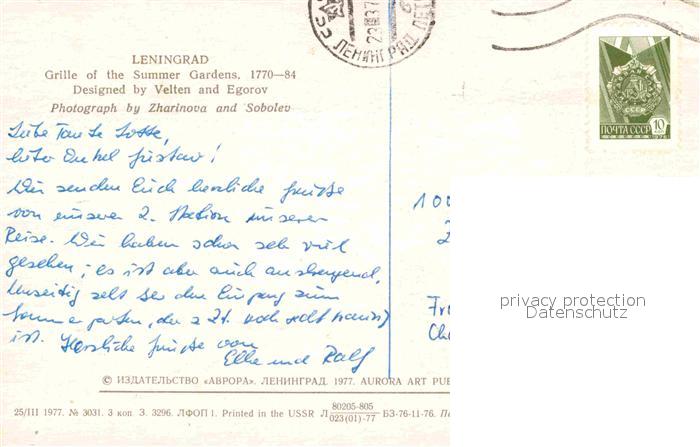 LENINGRAD
Grille of the Summer Gardens, 1770—84
Designed by Velten and Egorov
Photograph by Zharinova and Sobolev
ЛЕНИНГРАД
ПОЧТА СССР 10
Liebe Tante Lotte,
lieber Onkel Gustav!
Wir senden Euch herzliche Grüße
von unserer 2. Station unserer
Reise. Wir haben schon sehr viel
gesehen; es ist aber auch anstrengend.
Umseitig seht Ihr den Eingang zum
Sommergarten, der z. Zt. noch
ist. Herzliche Grüße von
Elke und Ralf
100
Fr
privacy protection
Datenschutz
© ИЗДАТЕЛЬСТВО «АВРОРА». ЛЕНИНГРАД. 1977. AURORA ART PUB
25/III 1977. № 3031. 3 коп. З. 3296. ЛФОП 1. Printed in the USSR Л 80205-805 БЗ-76-11-76. П
023(01)-77